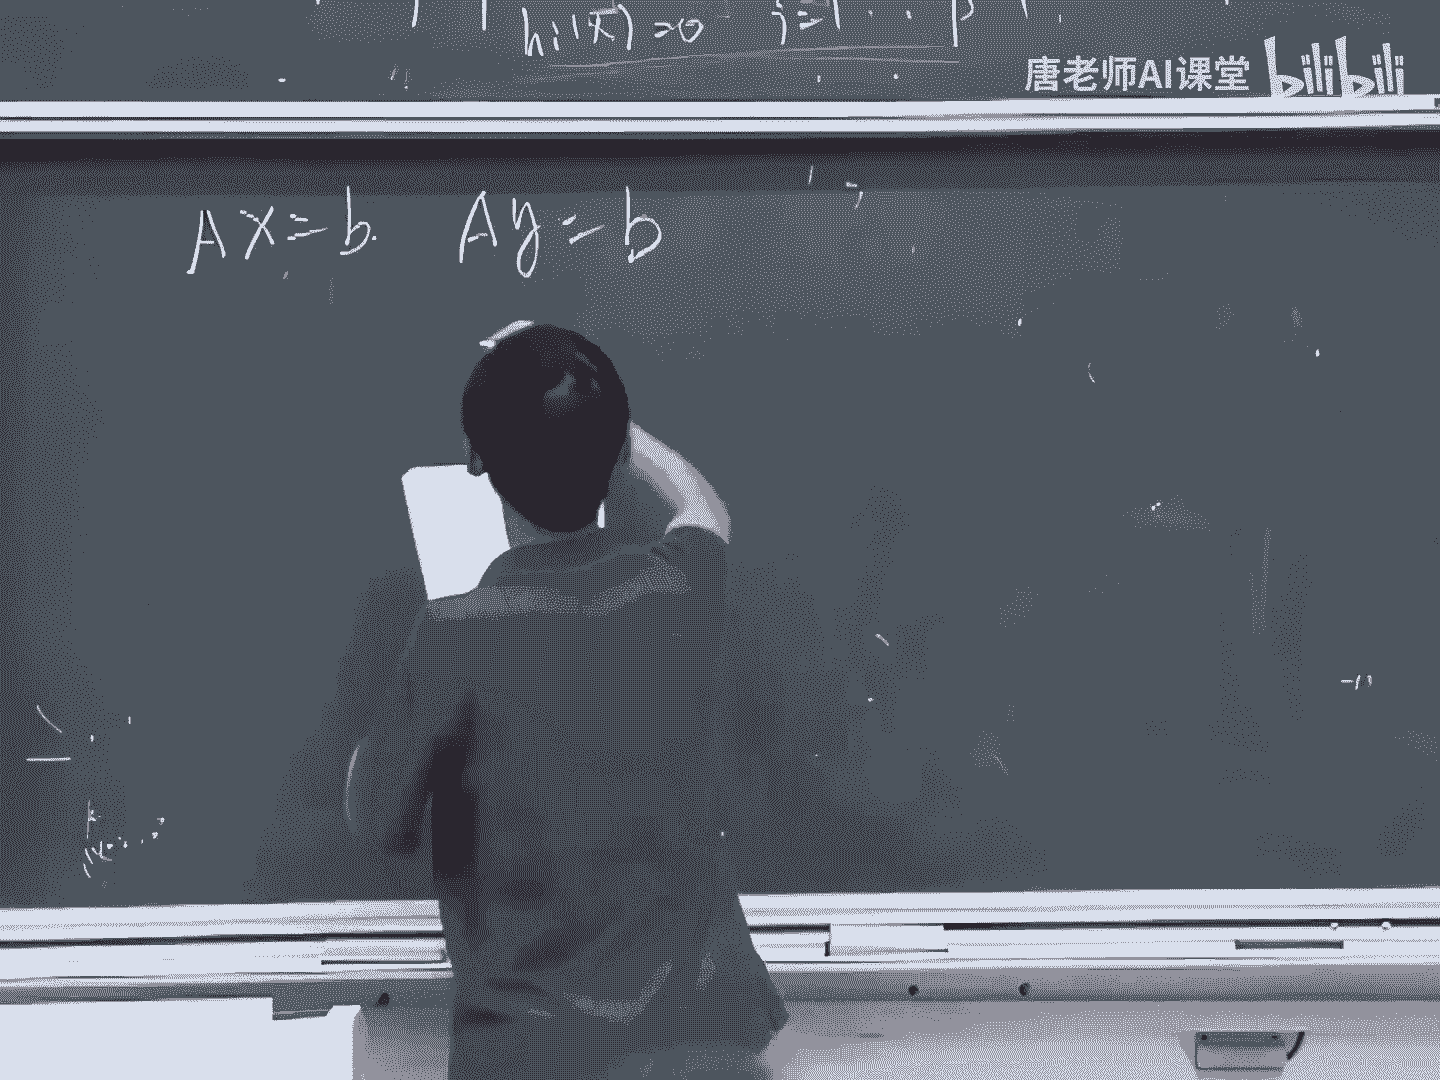 hi(x̄)=0 j=1 . . p
唐老师AI课堂 bilibili
Ax=b. Ay=b